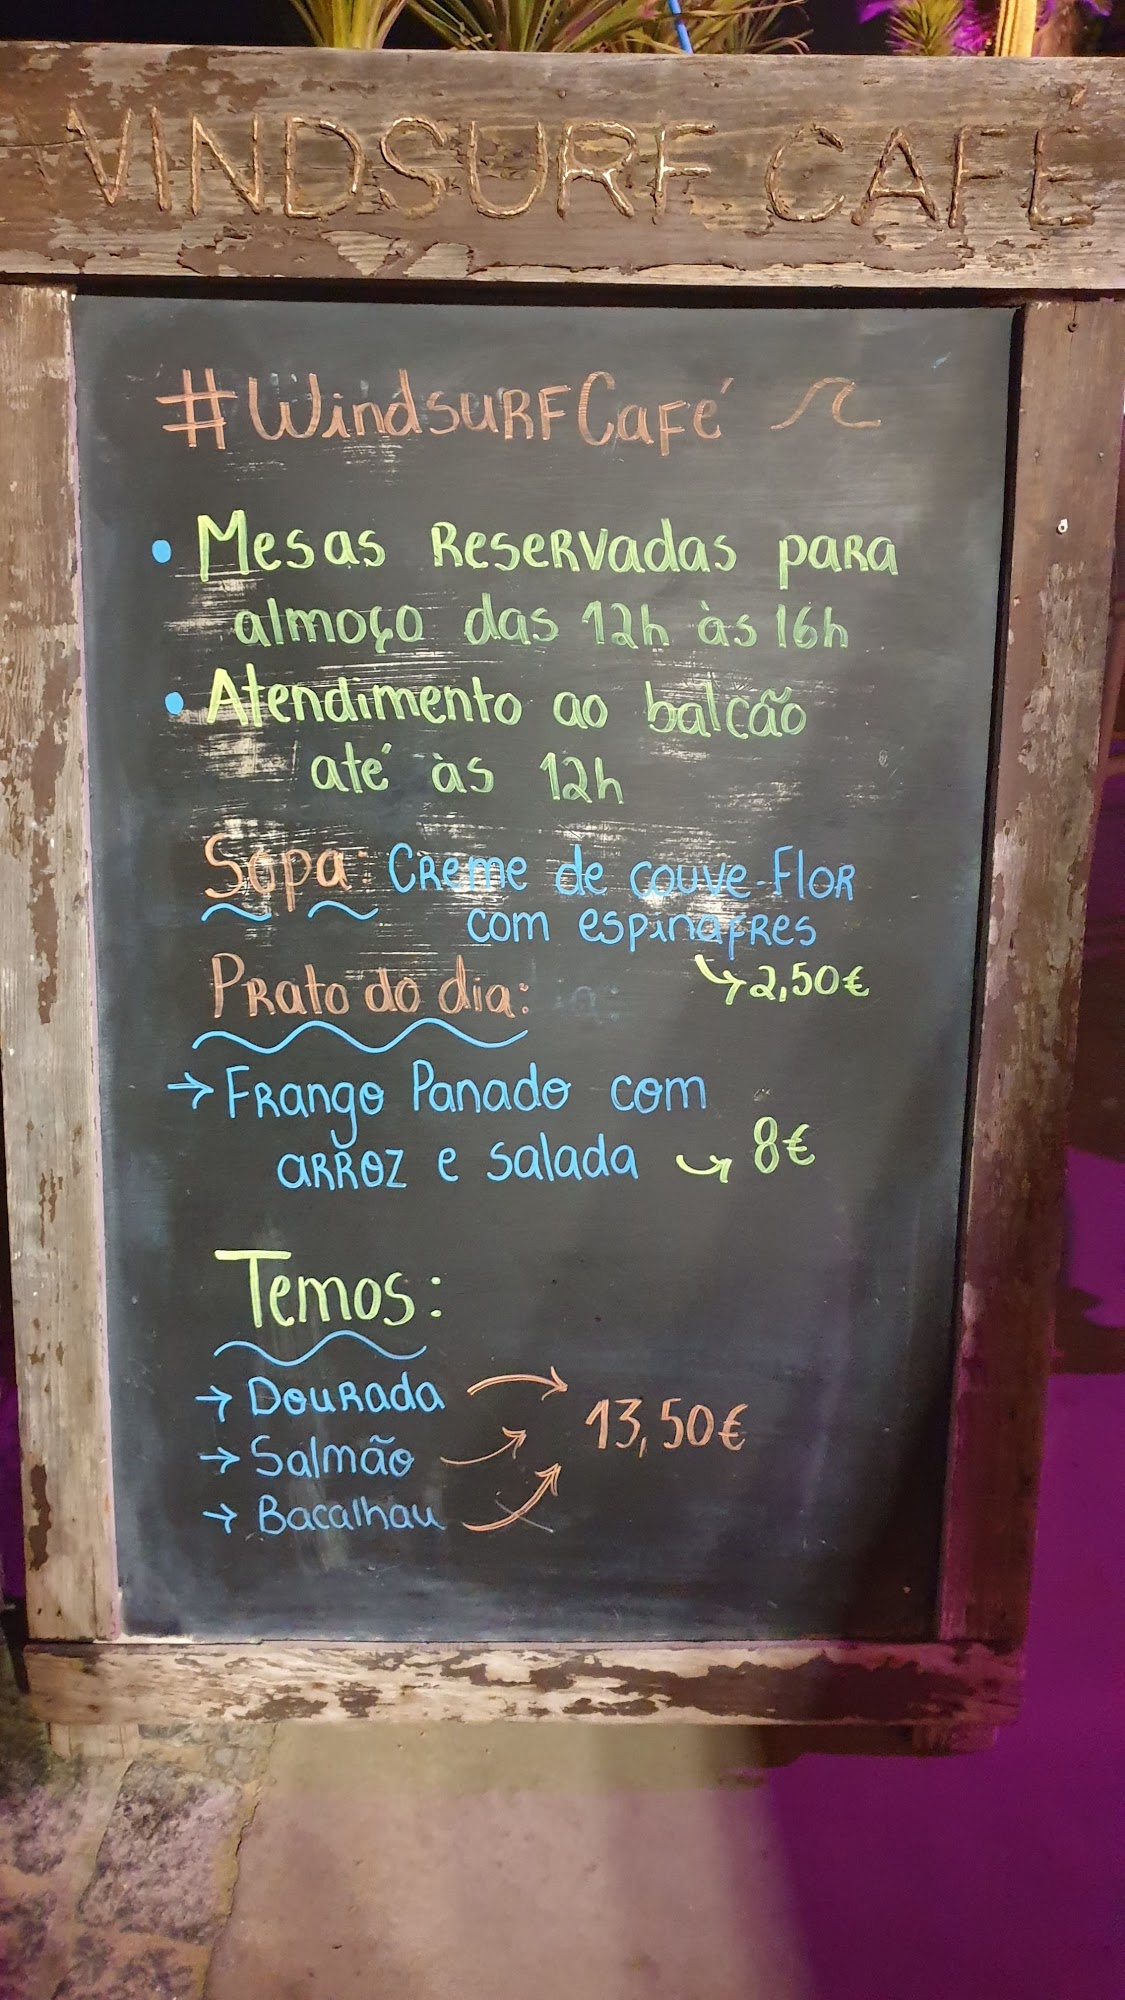 WINDSURF CAFÉ
#WindsurfCafé
• Mesas Reservadas para
almoço das 12h às 16h
• Atendimento ao balcão
até às 12h
Sopa: Creme de couve-flor
com espinafres
2,50€
Prato do dia:
→ Frango Panado com
arroz e salada 8€
Temos:
→ Dourada
→ Salmão 13,50€
→ Bacalhau